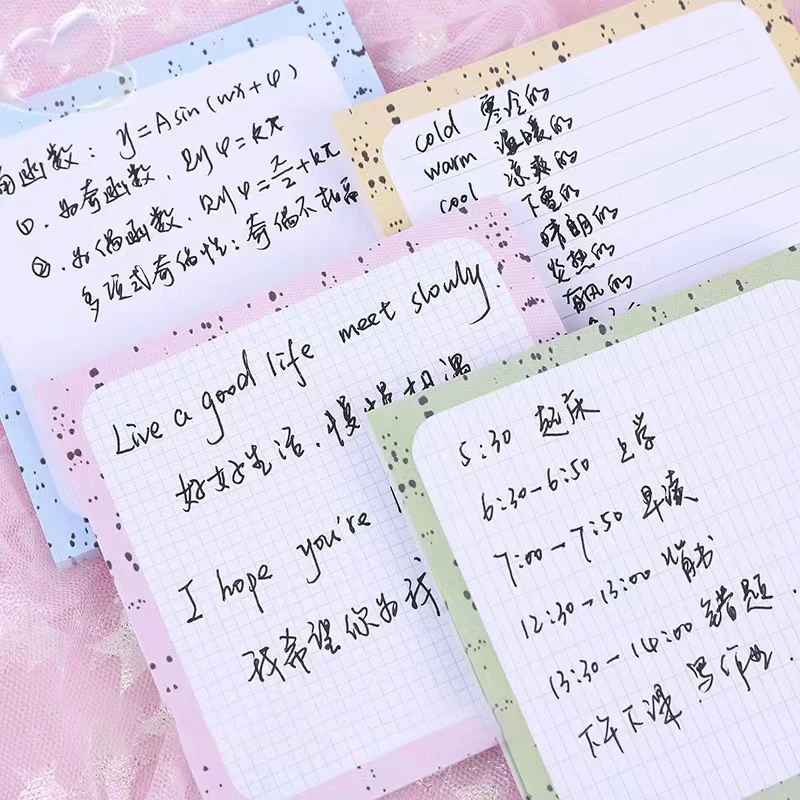 角函数: y=Asin(wx+φ)
①.为奇函数,则φ=kπ
②.为偶函数,则φ=π/2+kπ
多项式奇偶性:奇偶不
cold 寒冷的
warm 温暖的
cool 凉爽的
下雪的
晴朗的
炎热的
有风的
Live a good life meet slowly.
好好生活,慢慢相遇
I hope you're
我希望你为我
5:30 起床
6:30-6:50 上学
7:00-7:50 早读
12:30-13:00 背书
13:30-14:00 错题.
下午下课 写作业.